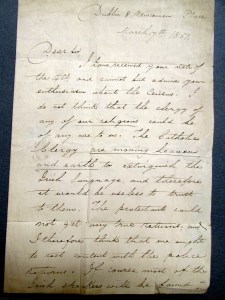 Dublin
March 9th 1851
Dear Sir
I have received your note of
the 5th and cannot but admire your
enthusiasm about the Census. I
do not think that the clergy of
any of our religions could be
of any use to us. The Catholic
Clergy are moving heaven
and earth to extinguish the
Irish language and therefore
it would be useless to trust
to them. The protestants could
not get very true returns, and
I therefore think that we ought
to rest content with the police
returns. Of course most of the
Irish speakers will be found